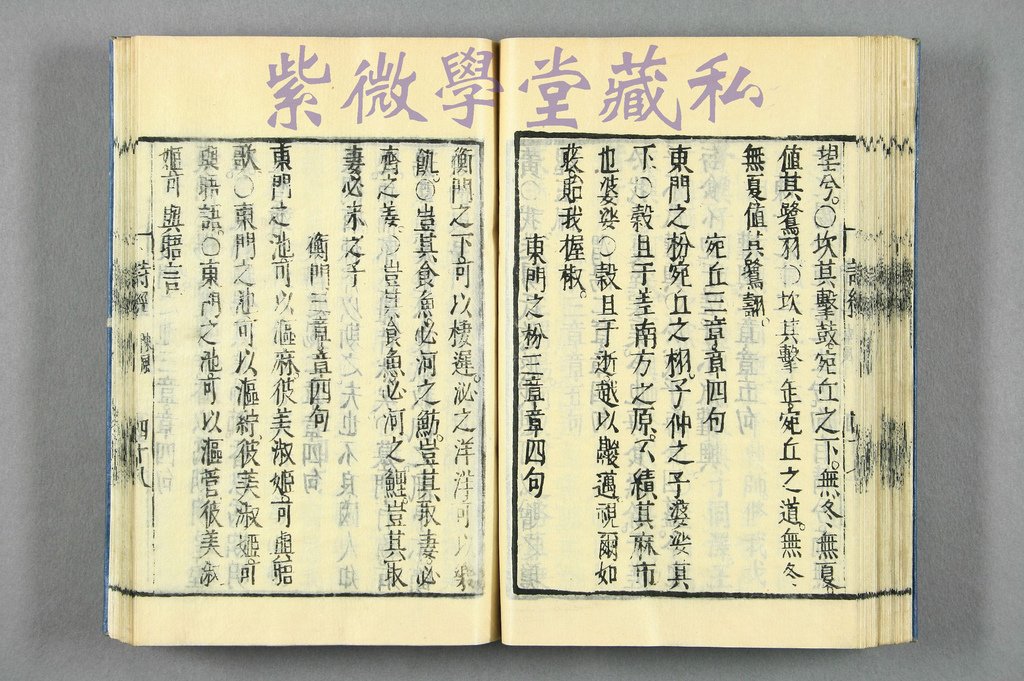 紫微學堂藏私
望兮。〇坎其擊鼓宛丘之下。無冬、無夏
值其鷺羽〇坎其擊缶宛丘之道。無冬、
無夏值其鷺翿。
宛丘三章章四句
東門之枌宛丘之栩。子仲之子。婆娑其
下。〇穀旦于差南方之原。不績其麻市
也婆娑〇穀旦于逝越以鬷邁視爾如
荍貽我握椒。
東門之枌三章章四句
衡門之下可以棲遲。泌之洋洋可以樂
飢。〇豈其食魚必河之魴。豈其取妻必
齊之姜〇豈其食魚必河之鯉。豈其取
妻必宋之子
衡門三章章四句
東門之池可以漚麻彼美淑姬。可與晤
歌〇東門之池可以漚紵。彼美淑姬。可
與晤語〇東門之池可以漚菅彼美淑
姬可與晤言
詩經 陳風 四十